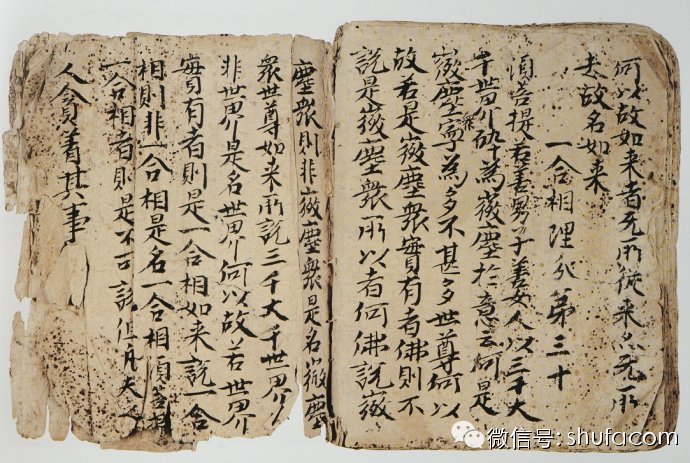 何以故如来者无所従来亦无所
去故名如来
一合相理分第三十
須菩提若善男子善女人以三千大
千世界碎為微塵於意云何是
微塵衆寧為多不甚多世尊何以
故若是微塵衆實有者佛則不
說是微塵衆所以者何佛說微
塵衆則非微塵衆是名微塵
衆世尊如来所說三千大千世界則
非世界是名世界何以故若世界
實有者則是一合相如来說一合
相則非一合相是名一合相須菩提
一合相者則是不可說但凡夫之
人貪著其事
微信号: shufacom